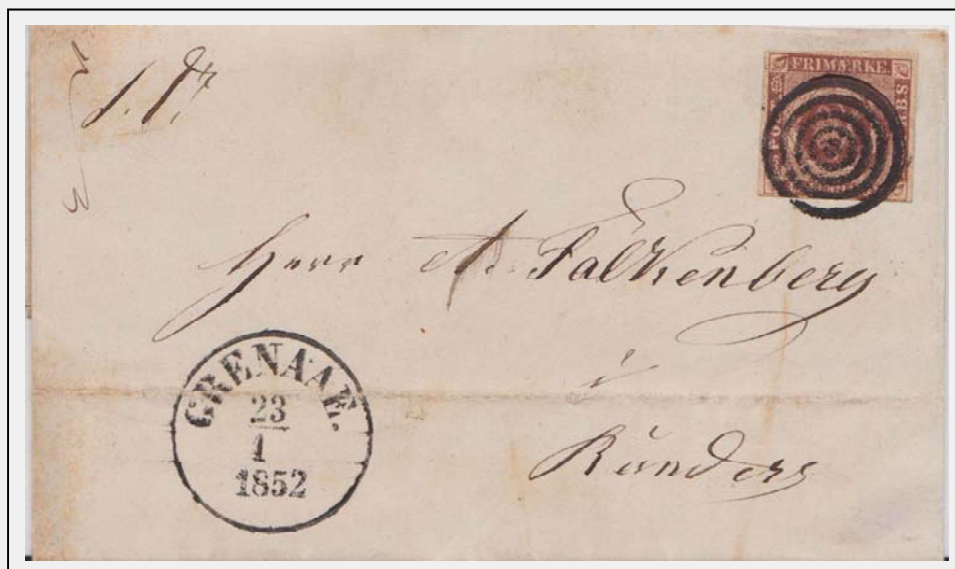 FRIMÆRKE.
Herr A. Falkenberg
i
Randers
GRENAAE.
23
1
1852